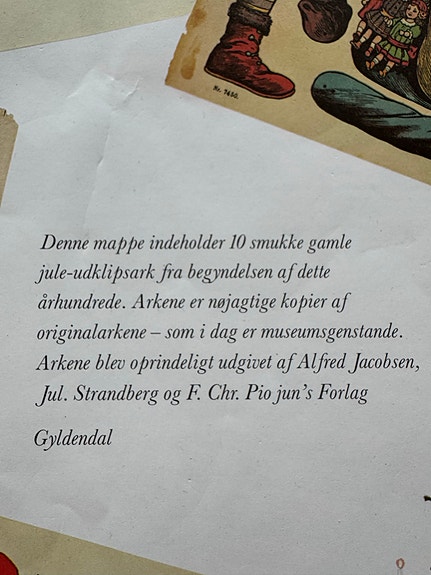 Nr. 7480.
Denne mappe indeholder 10 smukke gamle
jule-udklipsark fra begyndelsen af dette
århundrede. Arkene er nøjagtige kopier af
originalarkene – som i dag er museumsgenstande.
Arkene blev oprindeligt udgivet af Alfred Jacobsen,
Jul. Strandberg og F. Chr. Pio jun's Forlag
Gyldendal